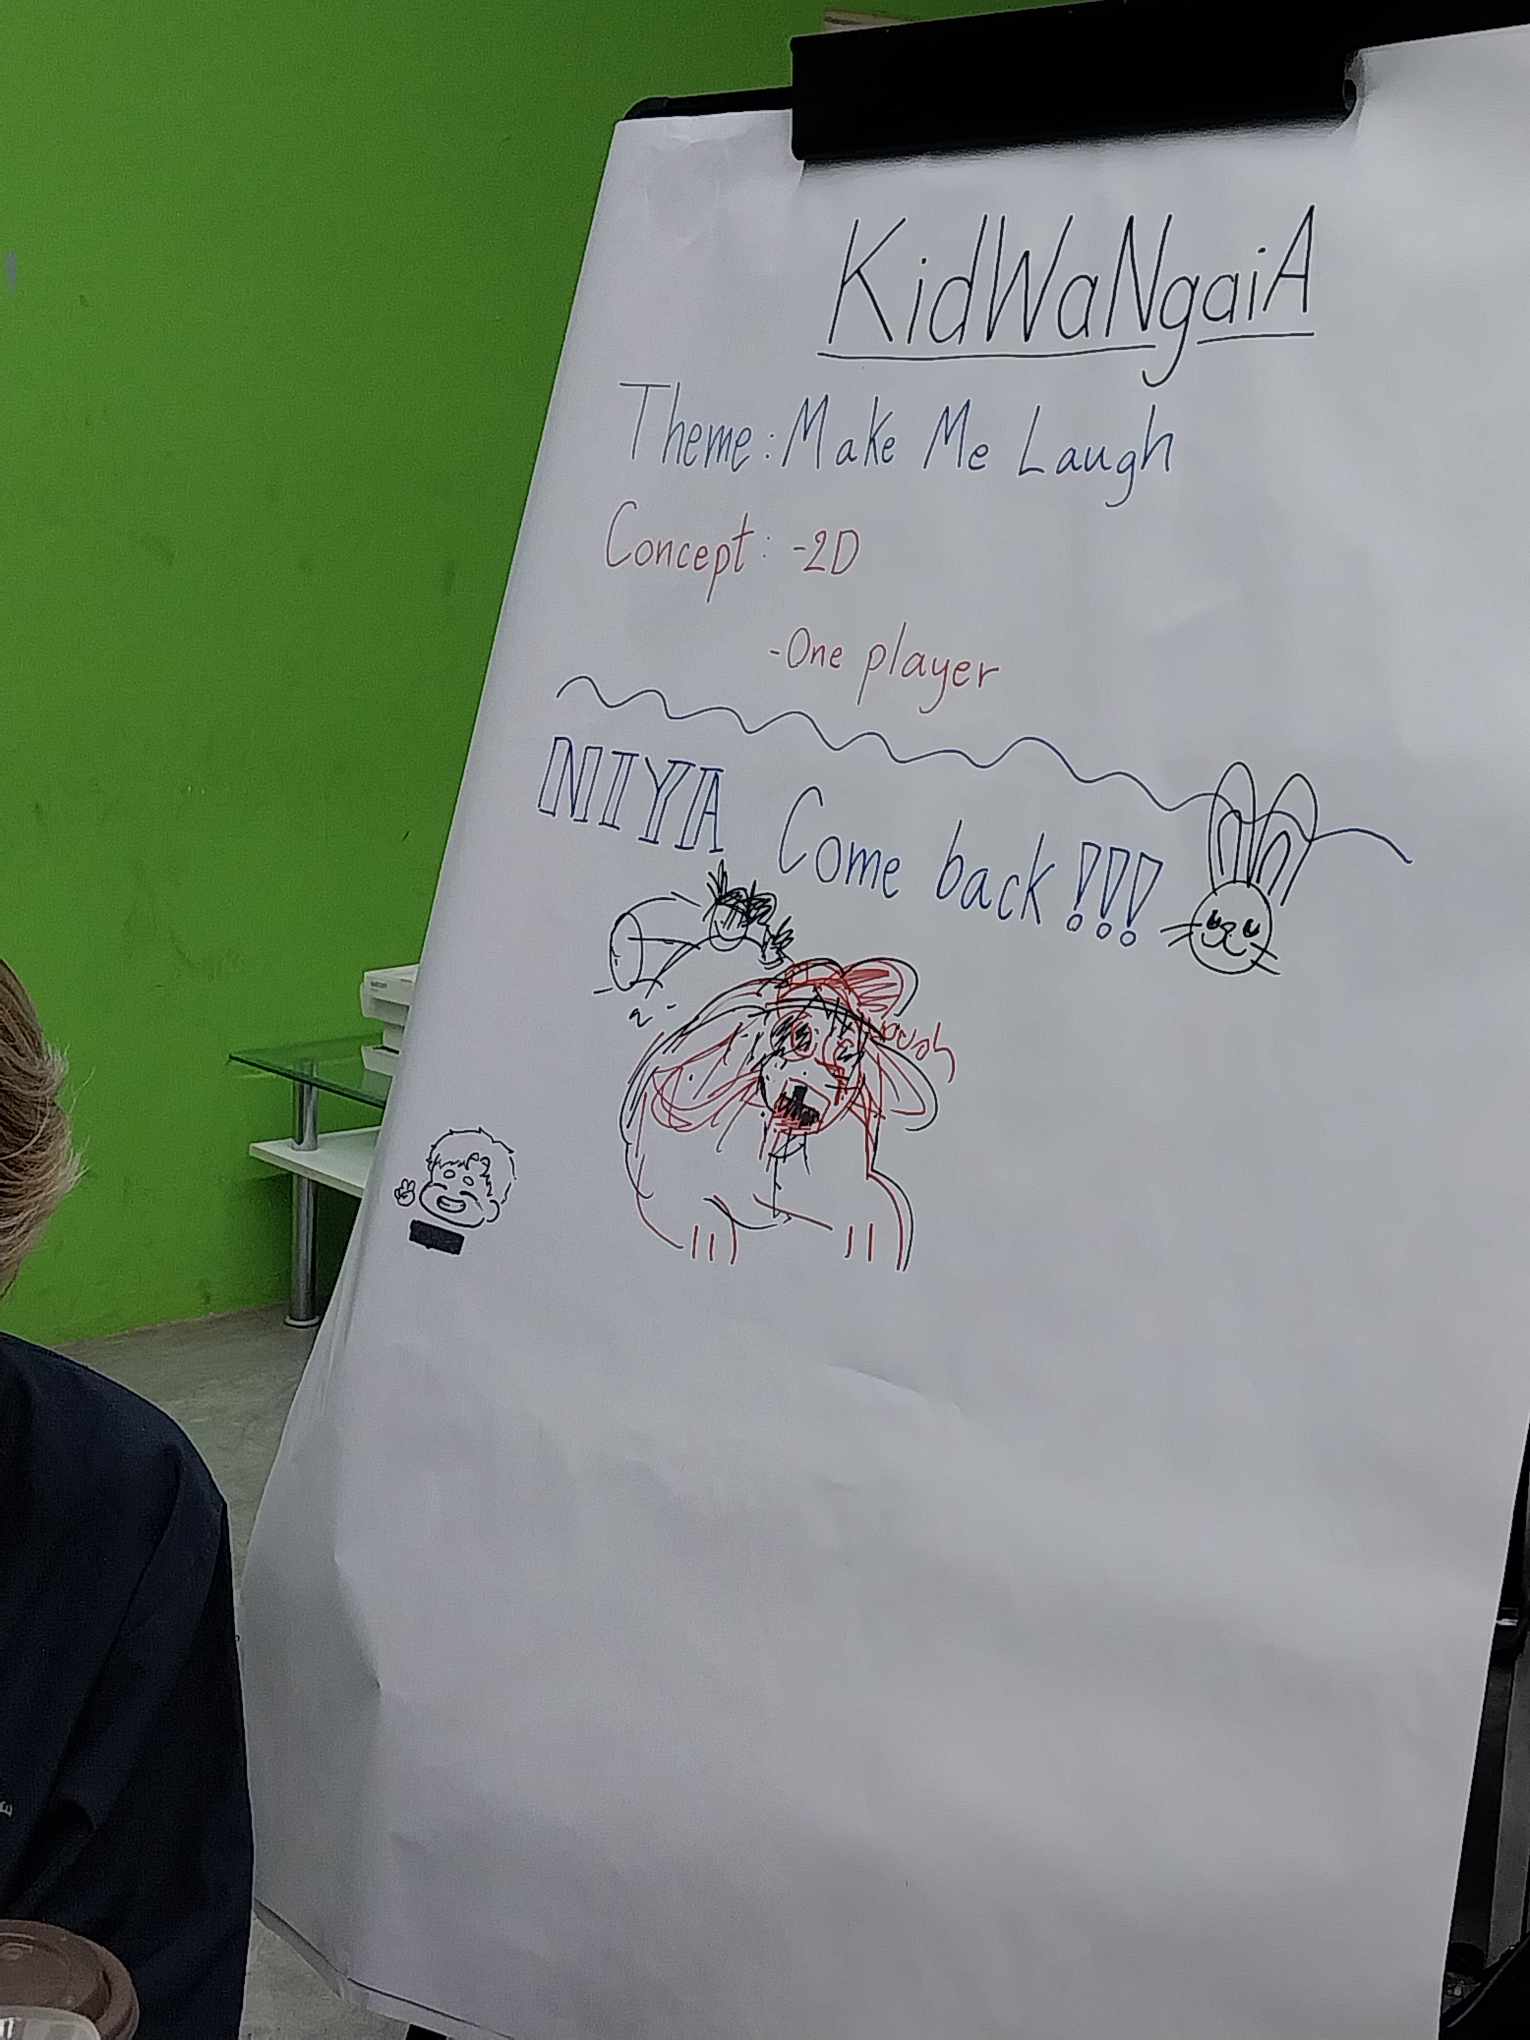 KidWaNgaiA
Theme: Make Me Laugh
Concept: -2D
-One player
NIYA Come back!!!